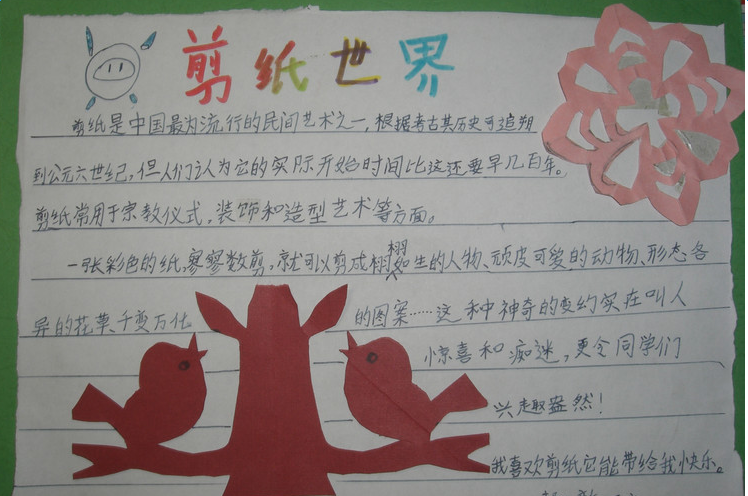 剪纸世界
剪纸是中国最为流行的民间艺术之一，根据考古其历史可追朔
到公元六世纪，但人们认为它的实际开始时间比这还要早几百年。
剪纸常用于宗教仪式，装饰和造型艺术等方面。
一张彩色的纸，寥寥数剪，就可以剪成栩栩如生的人物、顽皮可爱的动物、形态各
异的花草千变万化的图案……这种神奇的变幻实在叫人
惊喜和痴迷，更令同学们
兴趣盎然！
我喜欢剪纸它能带给我快乐。